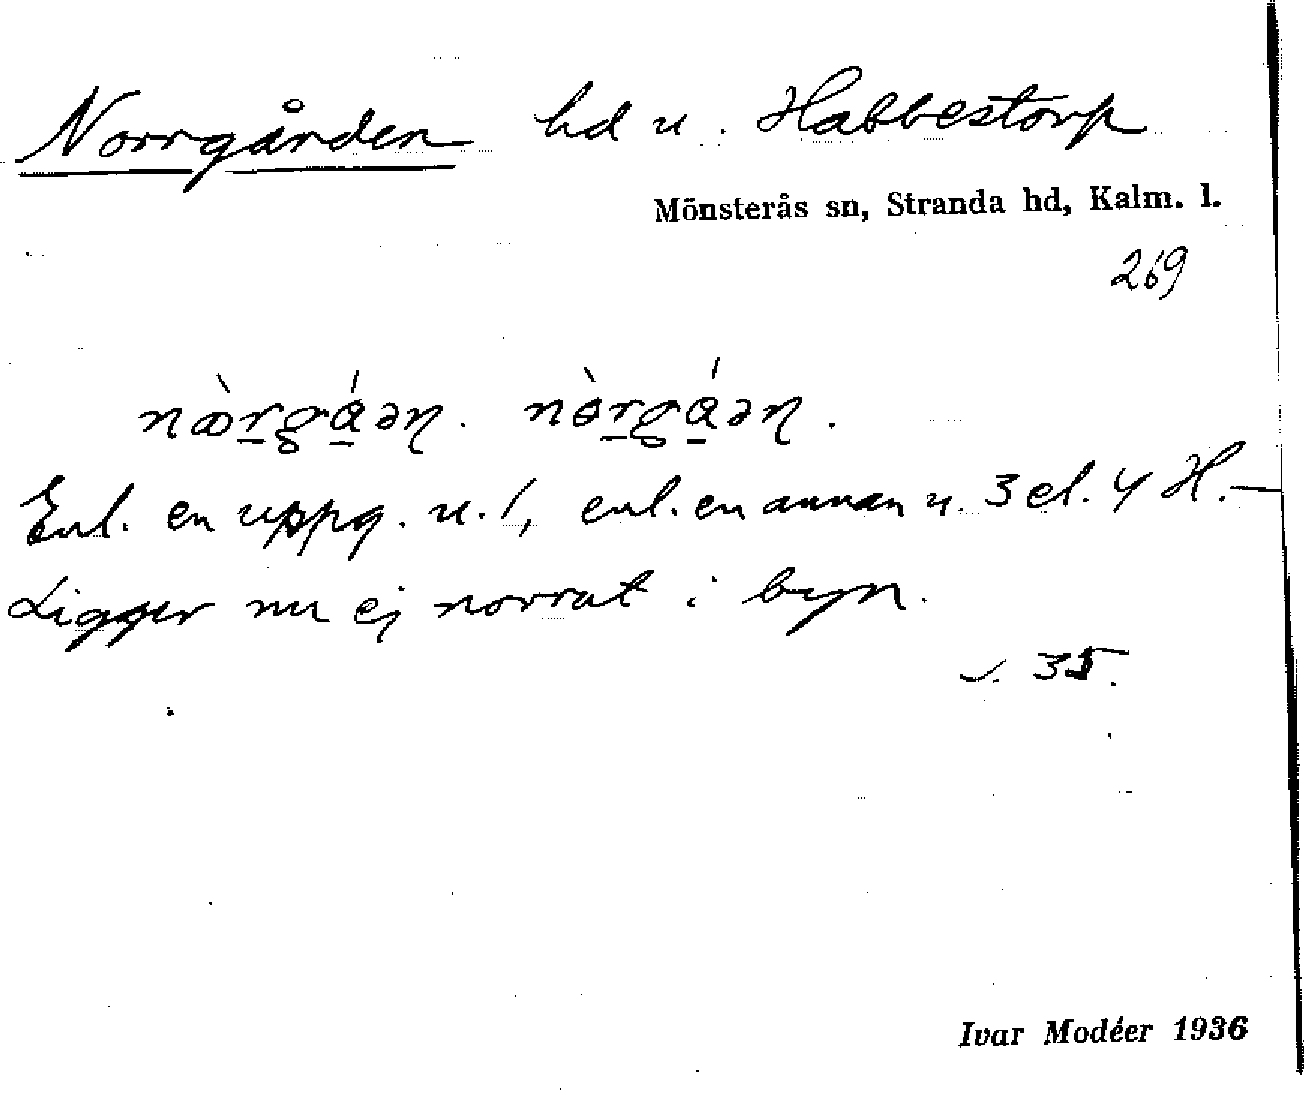 Norrgården hd u. Habbestorp
Mönsterås sn, Stranda hd, Kalm. l.
269
Enl. en uppg. u. 1, enl. en annan u. 3 el. 4 H. —
Ligger nu ej norrut i byn.
35.
Ivar Modéer 1936